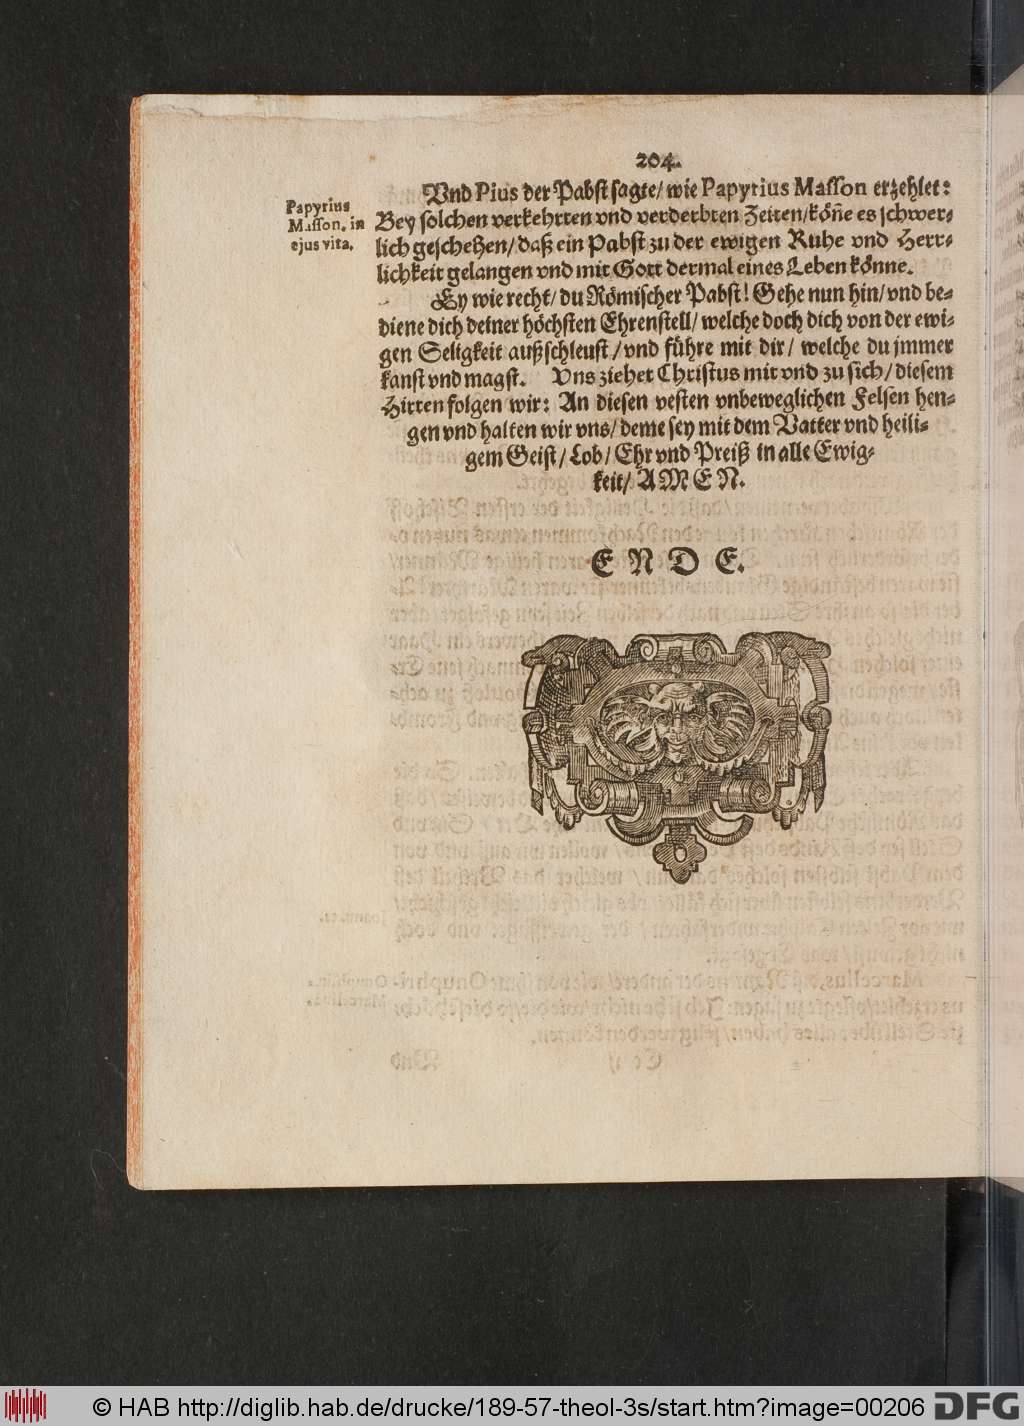 204.
Papyrius
Masson. in
ejus vita.
Vnd Pius der Pabst sagte/ wie Papyrius Masson erzehlet:
Bey solchen verkehrten vnd verderbten Zeiten/ köñe es schwer-
lich geschehen/ daß ein Pabst zu der ewigen Ruhe vnd Herr-
lichkeit gelangen vnd mit Gott dermal eines Leben könne.
Ey wie recht/ du Römischer Pabst! Gehe nun hin/ vnd be-
diene dich deiner höchsten Ehrenstell/ welche doch dich von der ewi-
gen Seligkeit außschleust/ vnd führe mit dir/ welche du jmmer
kanst vnd magst. Vns ziehet Christus mit vnd zu sich/ diesem
Hirten folgen wir: An diesen vesten vnbeweglichen Felsen hen-
gen vnd halten wir vns/ deme sey mit dem Vatter vnd heili-
gem Geist/ Lob/ Ehr vnd Preiß in alle Ewig-
keit/ AMEN.
ENDE.
© HAB http://diglib.hab.de/drucke/189-57-theol-3s/start.htm?image=00206
DFG